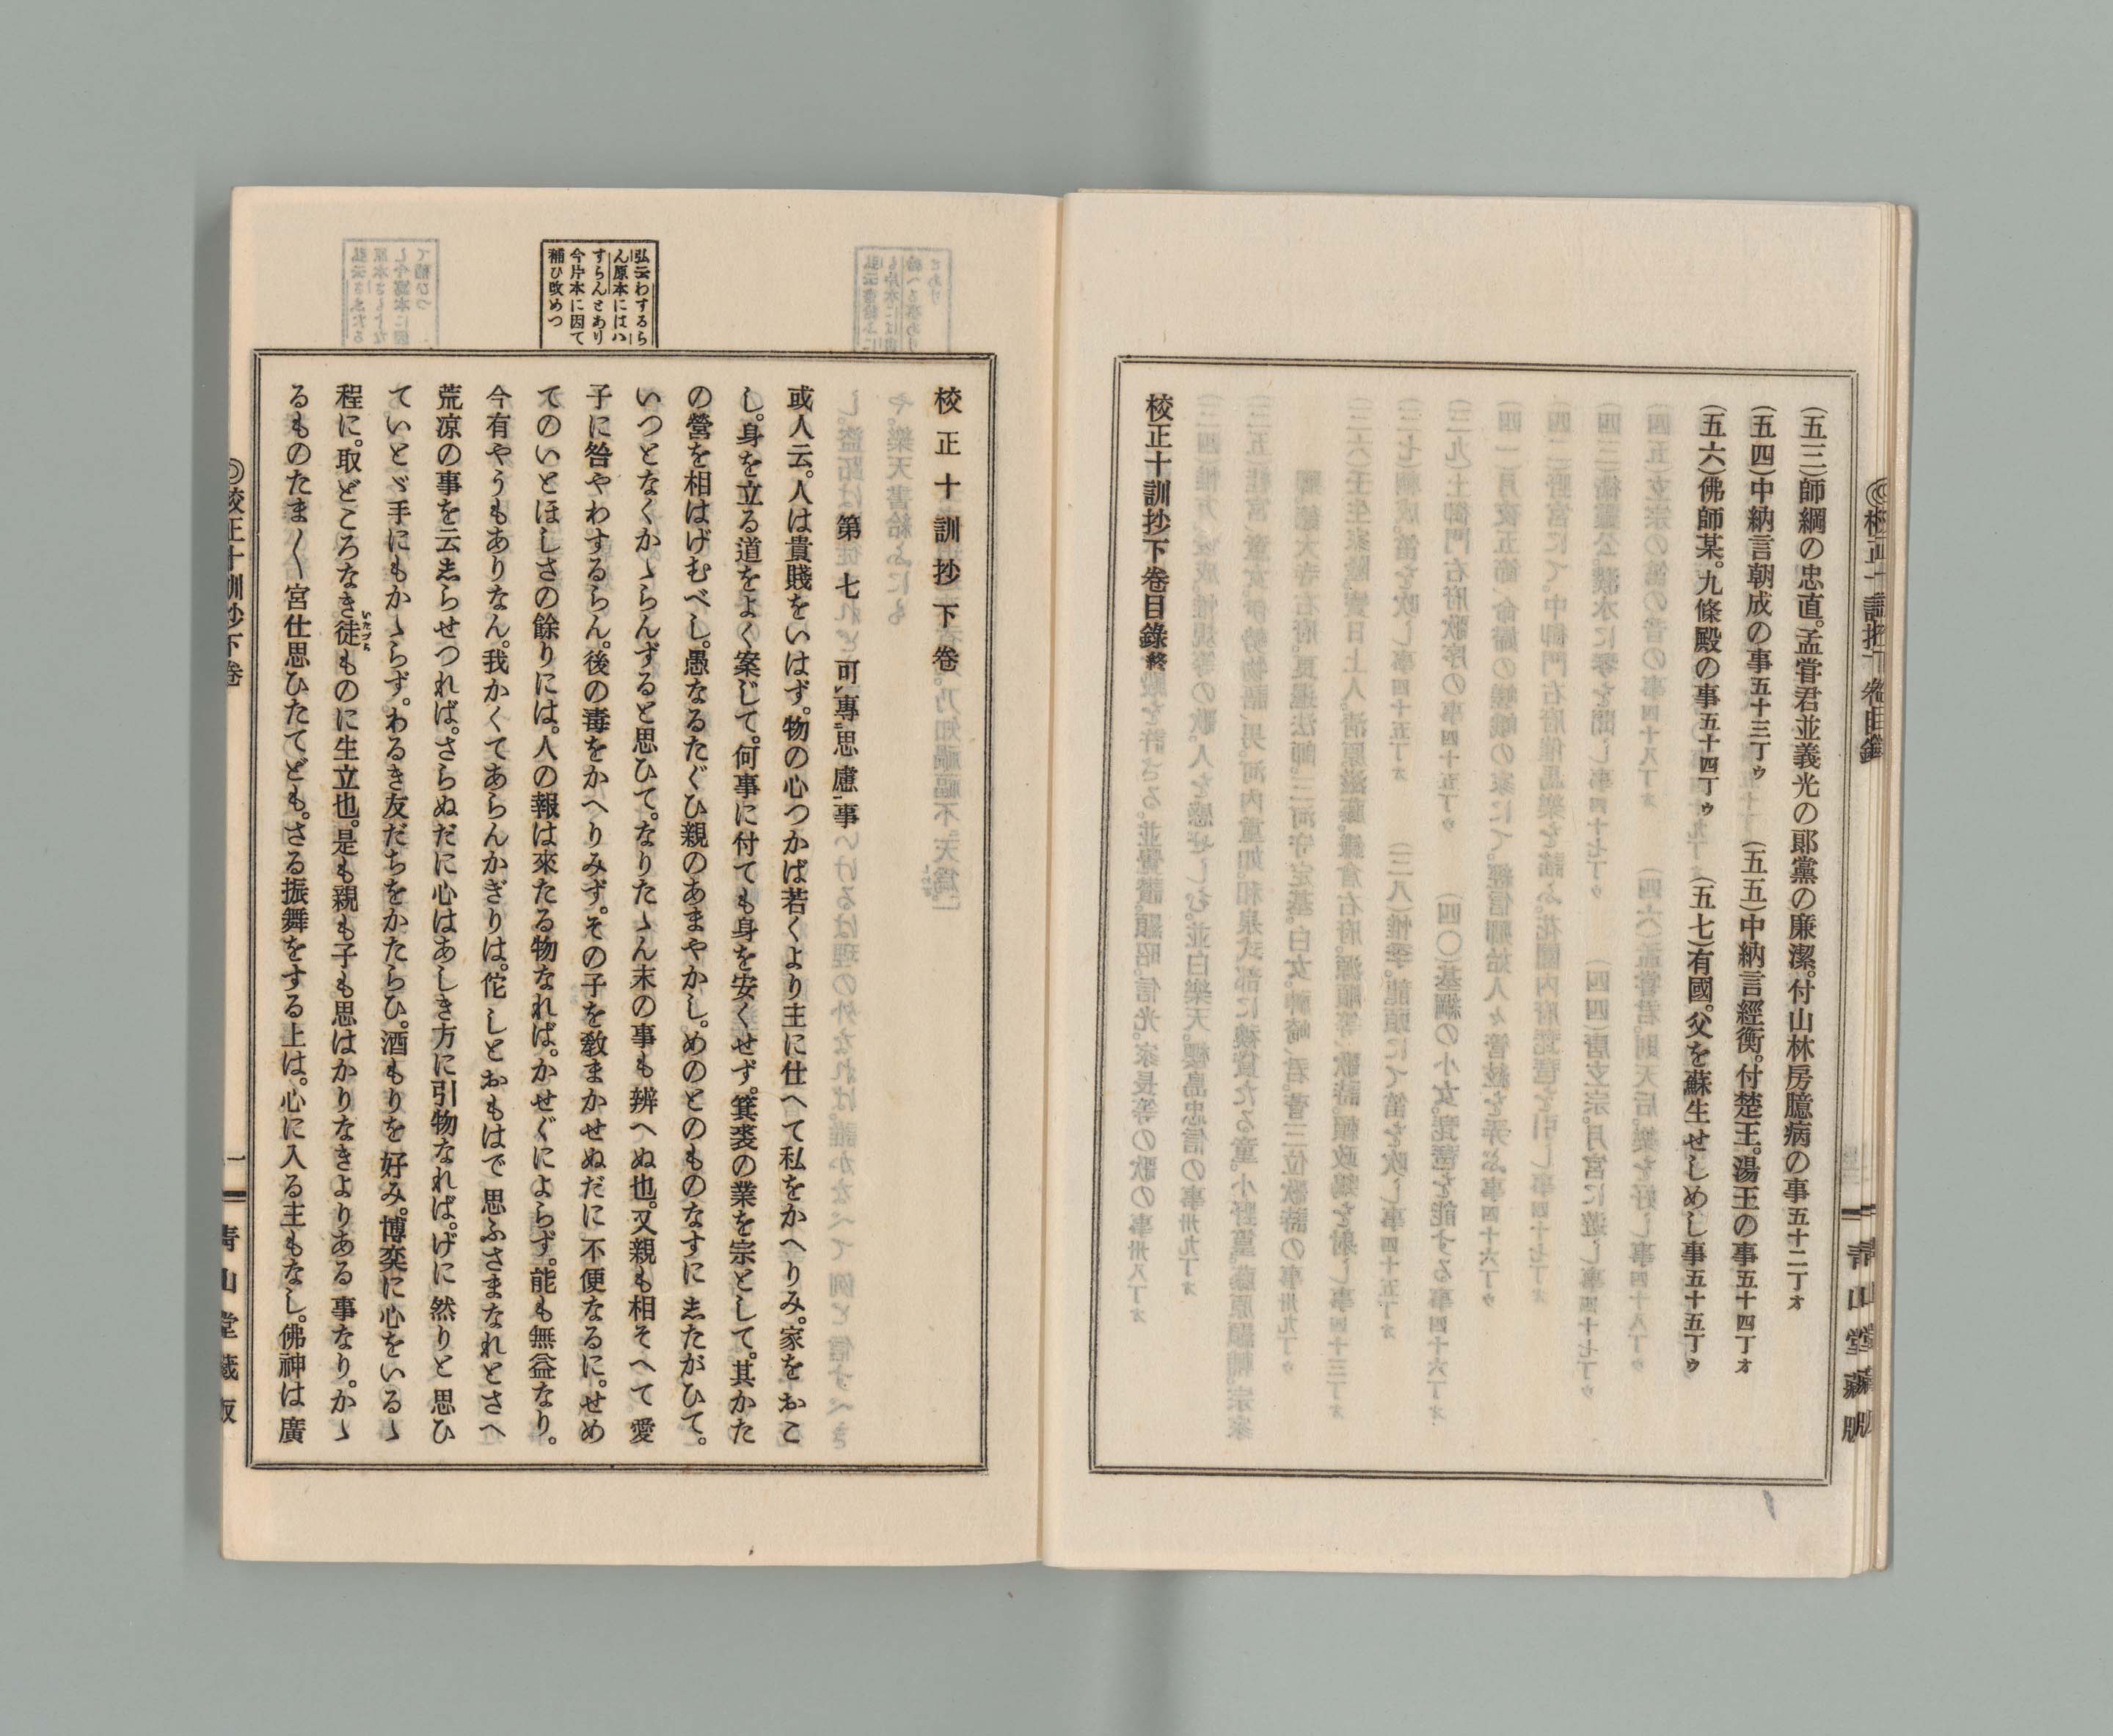 ◎校正十訓抄下卷目錄
靑山堂藏版
(五三)師綱の忠直。孟嘗君並義光の郞黨の廉潔。付山林房臆病の事五十二丁ォ
(五四)中納言朝成の事五十三丁ゥ (五五)中納言經衡。付楚王。湯王の事五十四丁ォ
(五六)佛師某。九條殿の事五十四丁ゥ (五七)有國。父を蘇生せしめし事五十五丁ゥ
校正十訓抄下卷目錄終
弘云わするら
ん原本にはハ
すらんとあり
今片本に因て
補ひ改めつ
校正十訓抄下卷
第七 可專思慮事
或人云。人は貴賤をいはず。物の心つかば若くより主に仕へて私をかへりみ。家をおこ
し。身を立る道をよく案じて。何事に付ても身を安くせず。箕裘の業を宗として。其かた
の營を相はげむべし。愚なるたぐひ親のあまやかし。めのとのものなすに志たがひて。
いつとなくかゝらんずると思ひて。なりたゝん末の事も辨へぬ也。又親も相そへて愛
子に咎やわするらん。後の毒をかへりみず。その子を敎まかせぬだに不便なるに。せめ
てのいとほしさの餘りには。人の報は來たる物なれば。かせぐによらず。能も無益なり。
今有やうもありなん。我かくてあらんかぎりは。佗しとおもはで思ふさまなれとさへ
荒凉の事を云志らせつれば。さらぬだに心はあしき方に引物なれば。げに然りと思ひ
ていとゞ手にもかゝらず。わるき友だちをかたらひ。酒もりを好み。博奕に心をいるゝ
程に。取どころなき徒いたづらものに生立也。是も親も子も思はかりなきよりある事なり。かゝ
るものたま〱宮仕思ひたてども。さる振舞をする上は。心に入る主もなし。佛神は廣
◎校正十訓抄下卷
一
靑山堂藏版